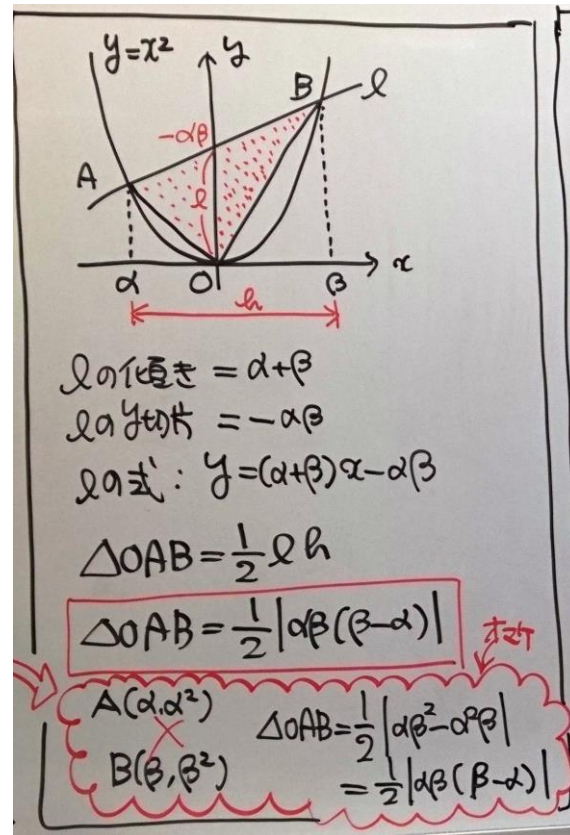 y=x² y
B l
-αβ
A
l
α O β x
h
lの傾き = α+β
lのy切片 = -αβ
lの式: y=(α+β)x-αβ
△OAB=1/2 l h
△OAB=1/2|αβ(β-α)|
オマケ
A(α,α²) △OAB=1/2|αβ²-α²β|
B(β,β²) =1/2|αβ(β-α)|